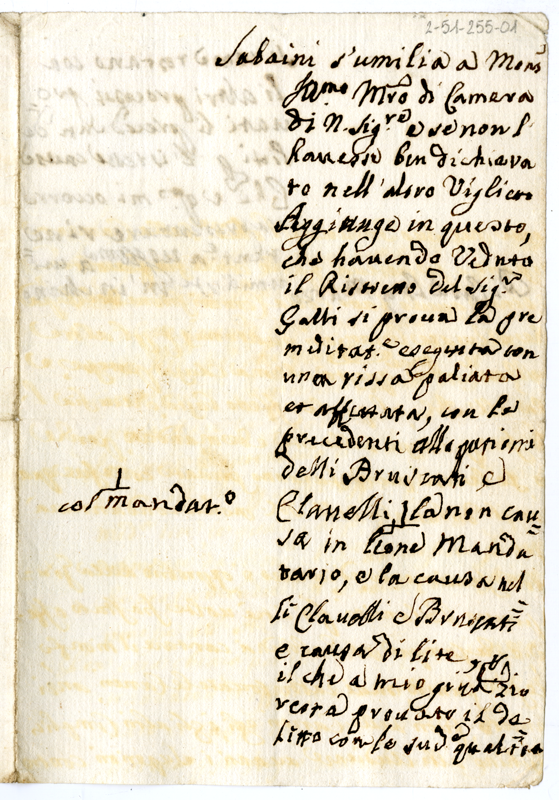 2-51-255-01
Sabaini s'umilia a Mons.r
Ill.mo Mro di Camera
di N. Sig.re e se non l'
havesse ben dichiara
to nell'altro Viglieto
Aggiunge in questo,
che havendo Veduto
il Ristretto del sig.r
Galli si prova la pre
meditat.e eseguita con
una rissa paliata
et affettata, con le
precedenti
delli Bruscati e
Clavelli, la non cau=
sa in Leone Manda=
col mandat.o
tario, e la causa nel
li Clavelli e Bruscati
e causa di lite,
il che a mio giu.zio
resta provato il de
litto con le sud.e qualità